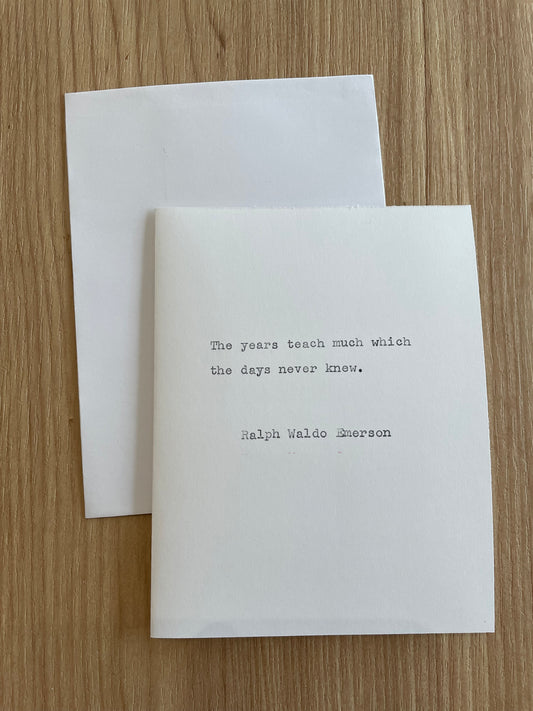 The years teach much which
the days never knew.
Ralph Waldo Emerson